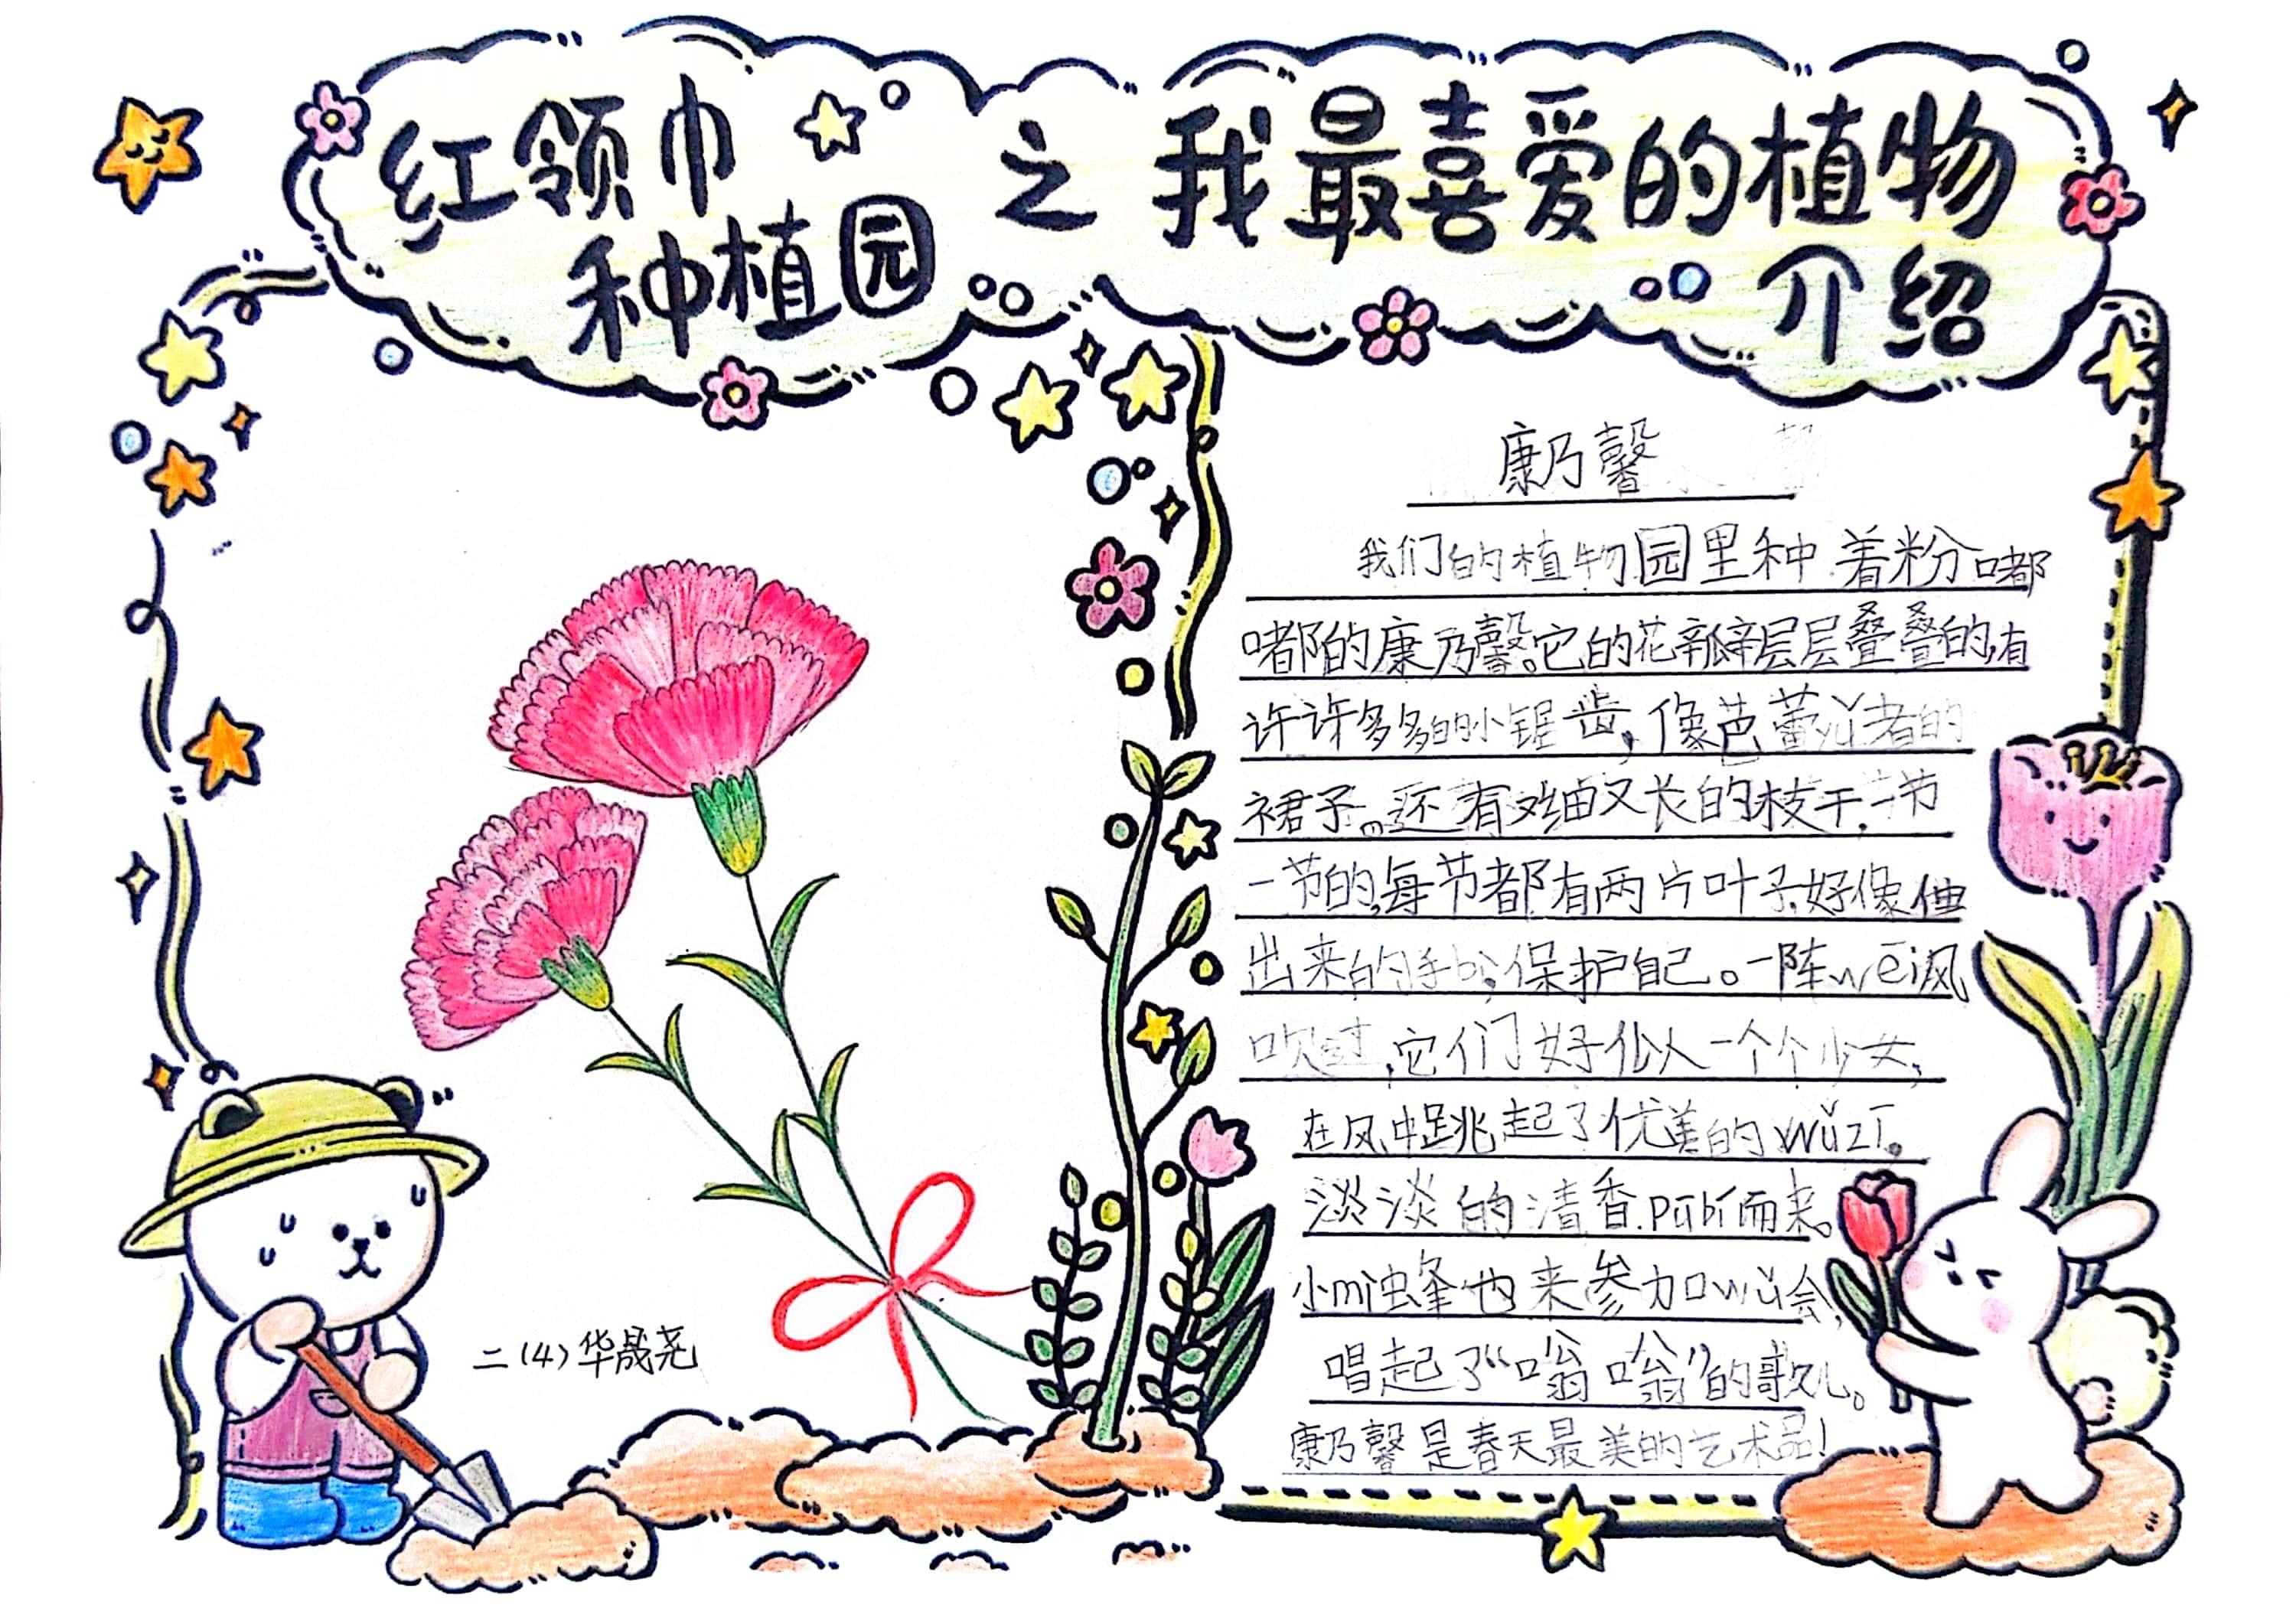 红领巾
种植园
之
我最喜爱的植物
介绍
康乃馨
我们的植物园里种着粉嘟
嘟的康乃馨。它的花瓣层层叠叠的,有
许许多多的小锯齿,像芭蕾yǔ者的
裙子。还有又细又长的枝干,一节
一节的,每节都有两片叶子,好像伸
出来的手bì,保护自己。一阵wēi风
吹过,它们好似一个个少女,
在风中跳起了优美的wǔzī。
淡淡的清香pūbí而来。
小mì蜂也来参加wǔ会,
唱起了“嗡嗡”的歌儿。
康乃馨是春天最美的艺术品!
二(4)华晟尧